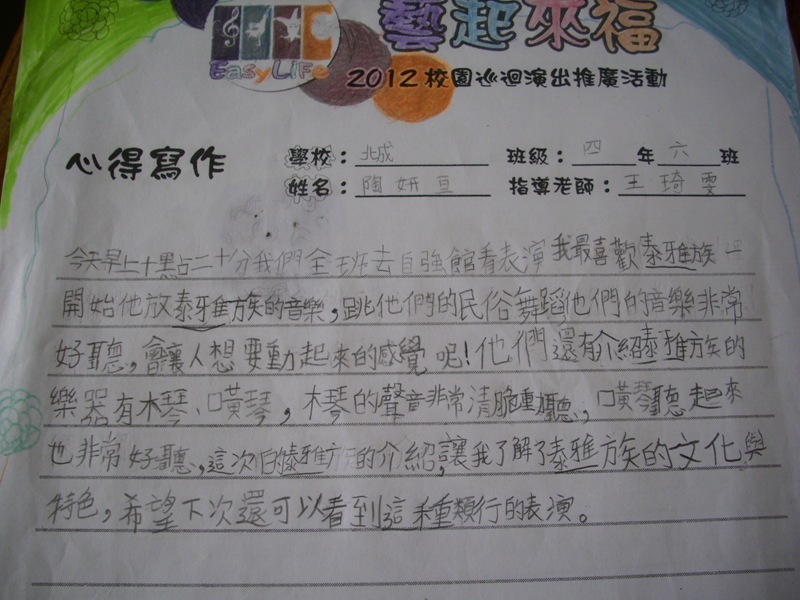 藝起來福
Easy Life
2012校園巡迴演出推廣活動
心得寫作
學校:城 班級:四年六班
姓名:陶妍亘 指導老師:王琦雯
今天早上十點二十分我們全班去自強館看表演我最喜歡泰雅族一
開始他放泰雅族的音樂,跳他們的民俗舞蹈他們的音樂非常
好聽,會讓人想要動起來的感覺呢!他們還有介紹泰雅族的
樂器有木琴、嘴簧琴,木琴的聲音非常清脆重聽,嘴簧琴聽起來
也非常好聽,這次的泰雅族的介紹,讓我了解了泰雅族的文化與
特色,希望下次還可以看到這種類行的表演。